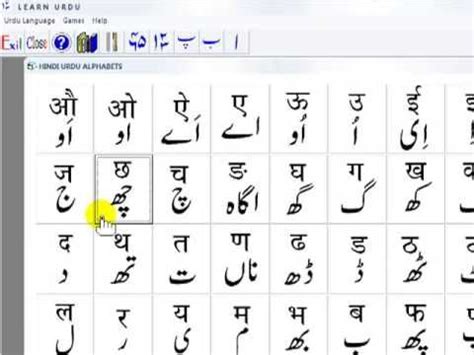 LEARN URDU
Urdu Language Games Help
Exit Close ? پ ب ا
HINDI URDU ALPHABETS
औ ओ ऐ ए ऊ उ ई
اَو او اَے اے اُو اُ اِی
ज छ च ङ घ ग ख
ج چھ چ اگاہ گھ گ کھ
द थ त ण ढ ड ठ
د تھ ت ناں ڈھ ڈ ٹھ
ल र य म भ ब फ
ل ر ی م بھ ب پھ